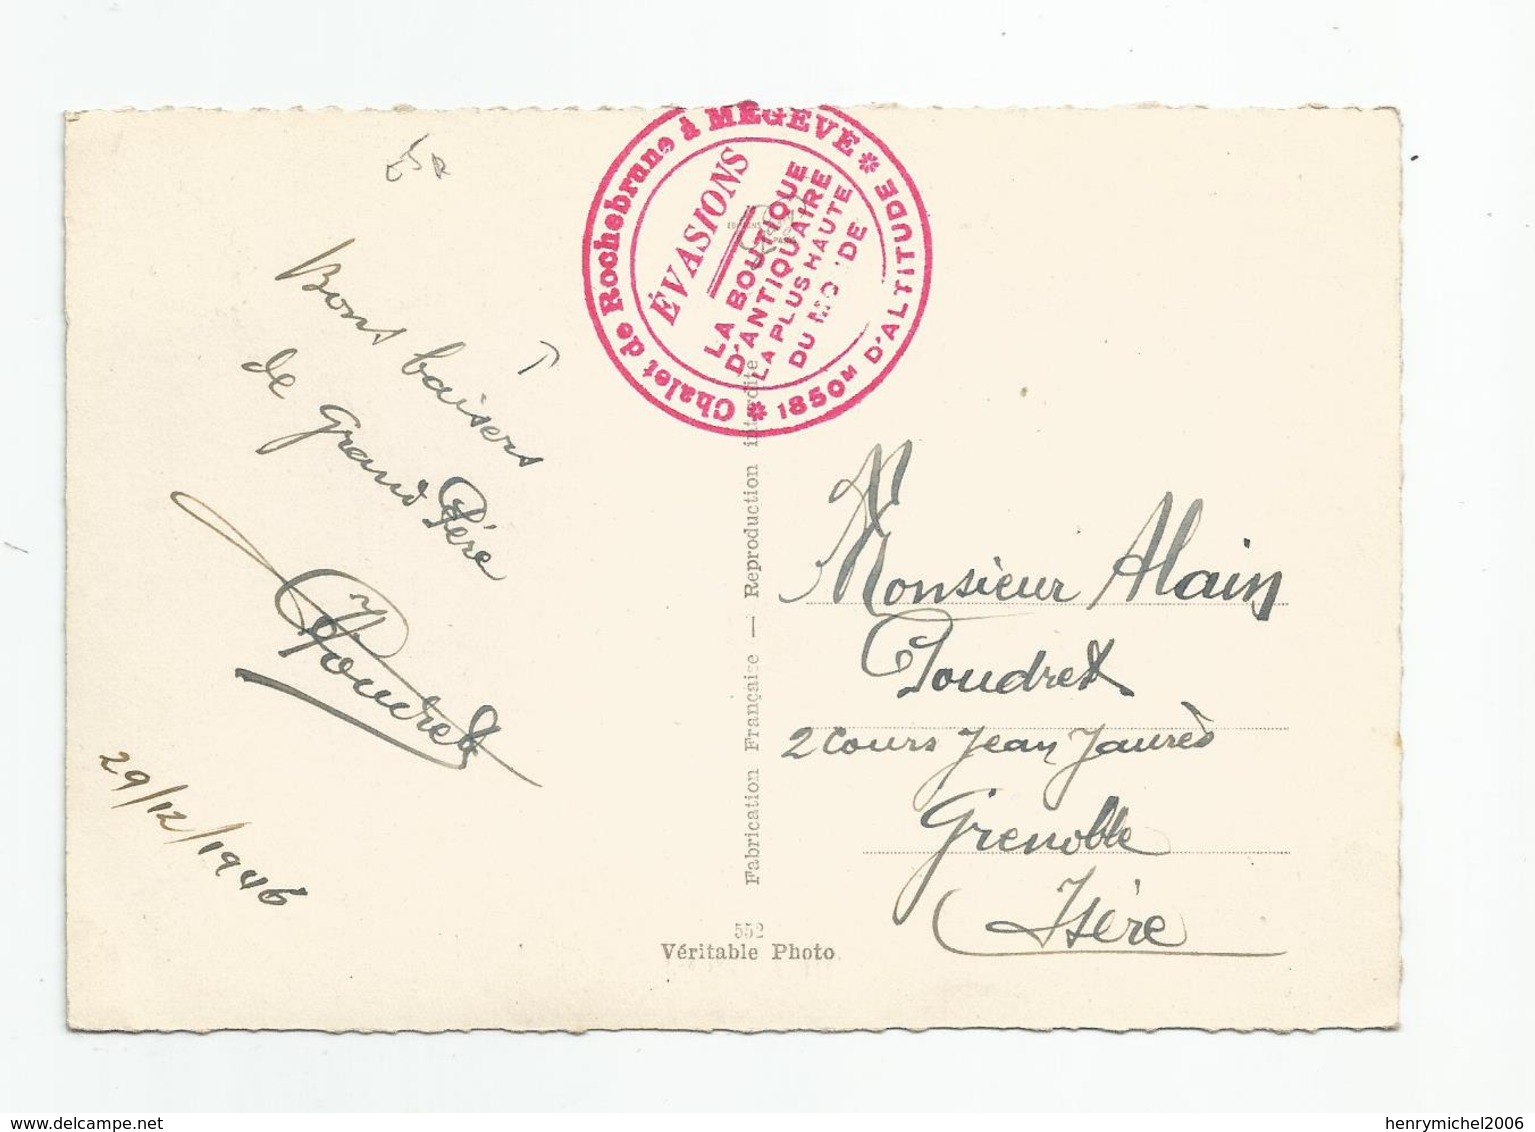 Chalet de Rochebrune à MEGÈVE * 1850M D'ALTITUDE *
ÉVASIONS
LA BOUTIQUE
D'ANTIQUAIRE
LA PLUS HAUTE
DU MONDE
Bons baisers
de Grand Père
Poudret
29/12/1946
Fabrication Française — Reproduction interdite
552
Véritable Photo
Monsieur Alain
Poudret
2 Cours Jean Jaurès
Grenoble
Isère
henrymichel2006